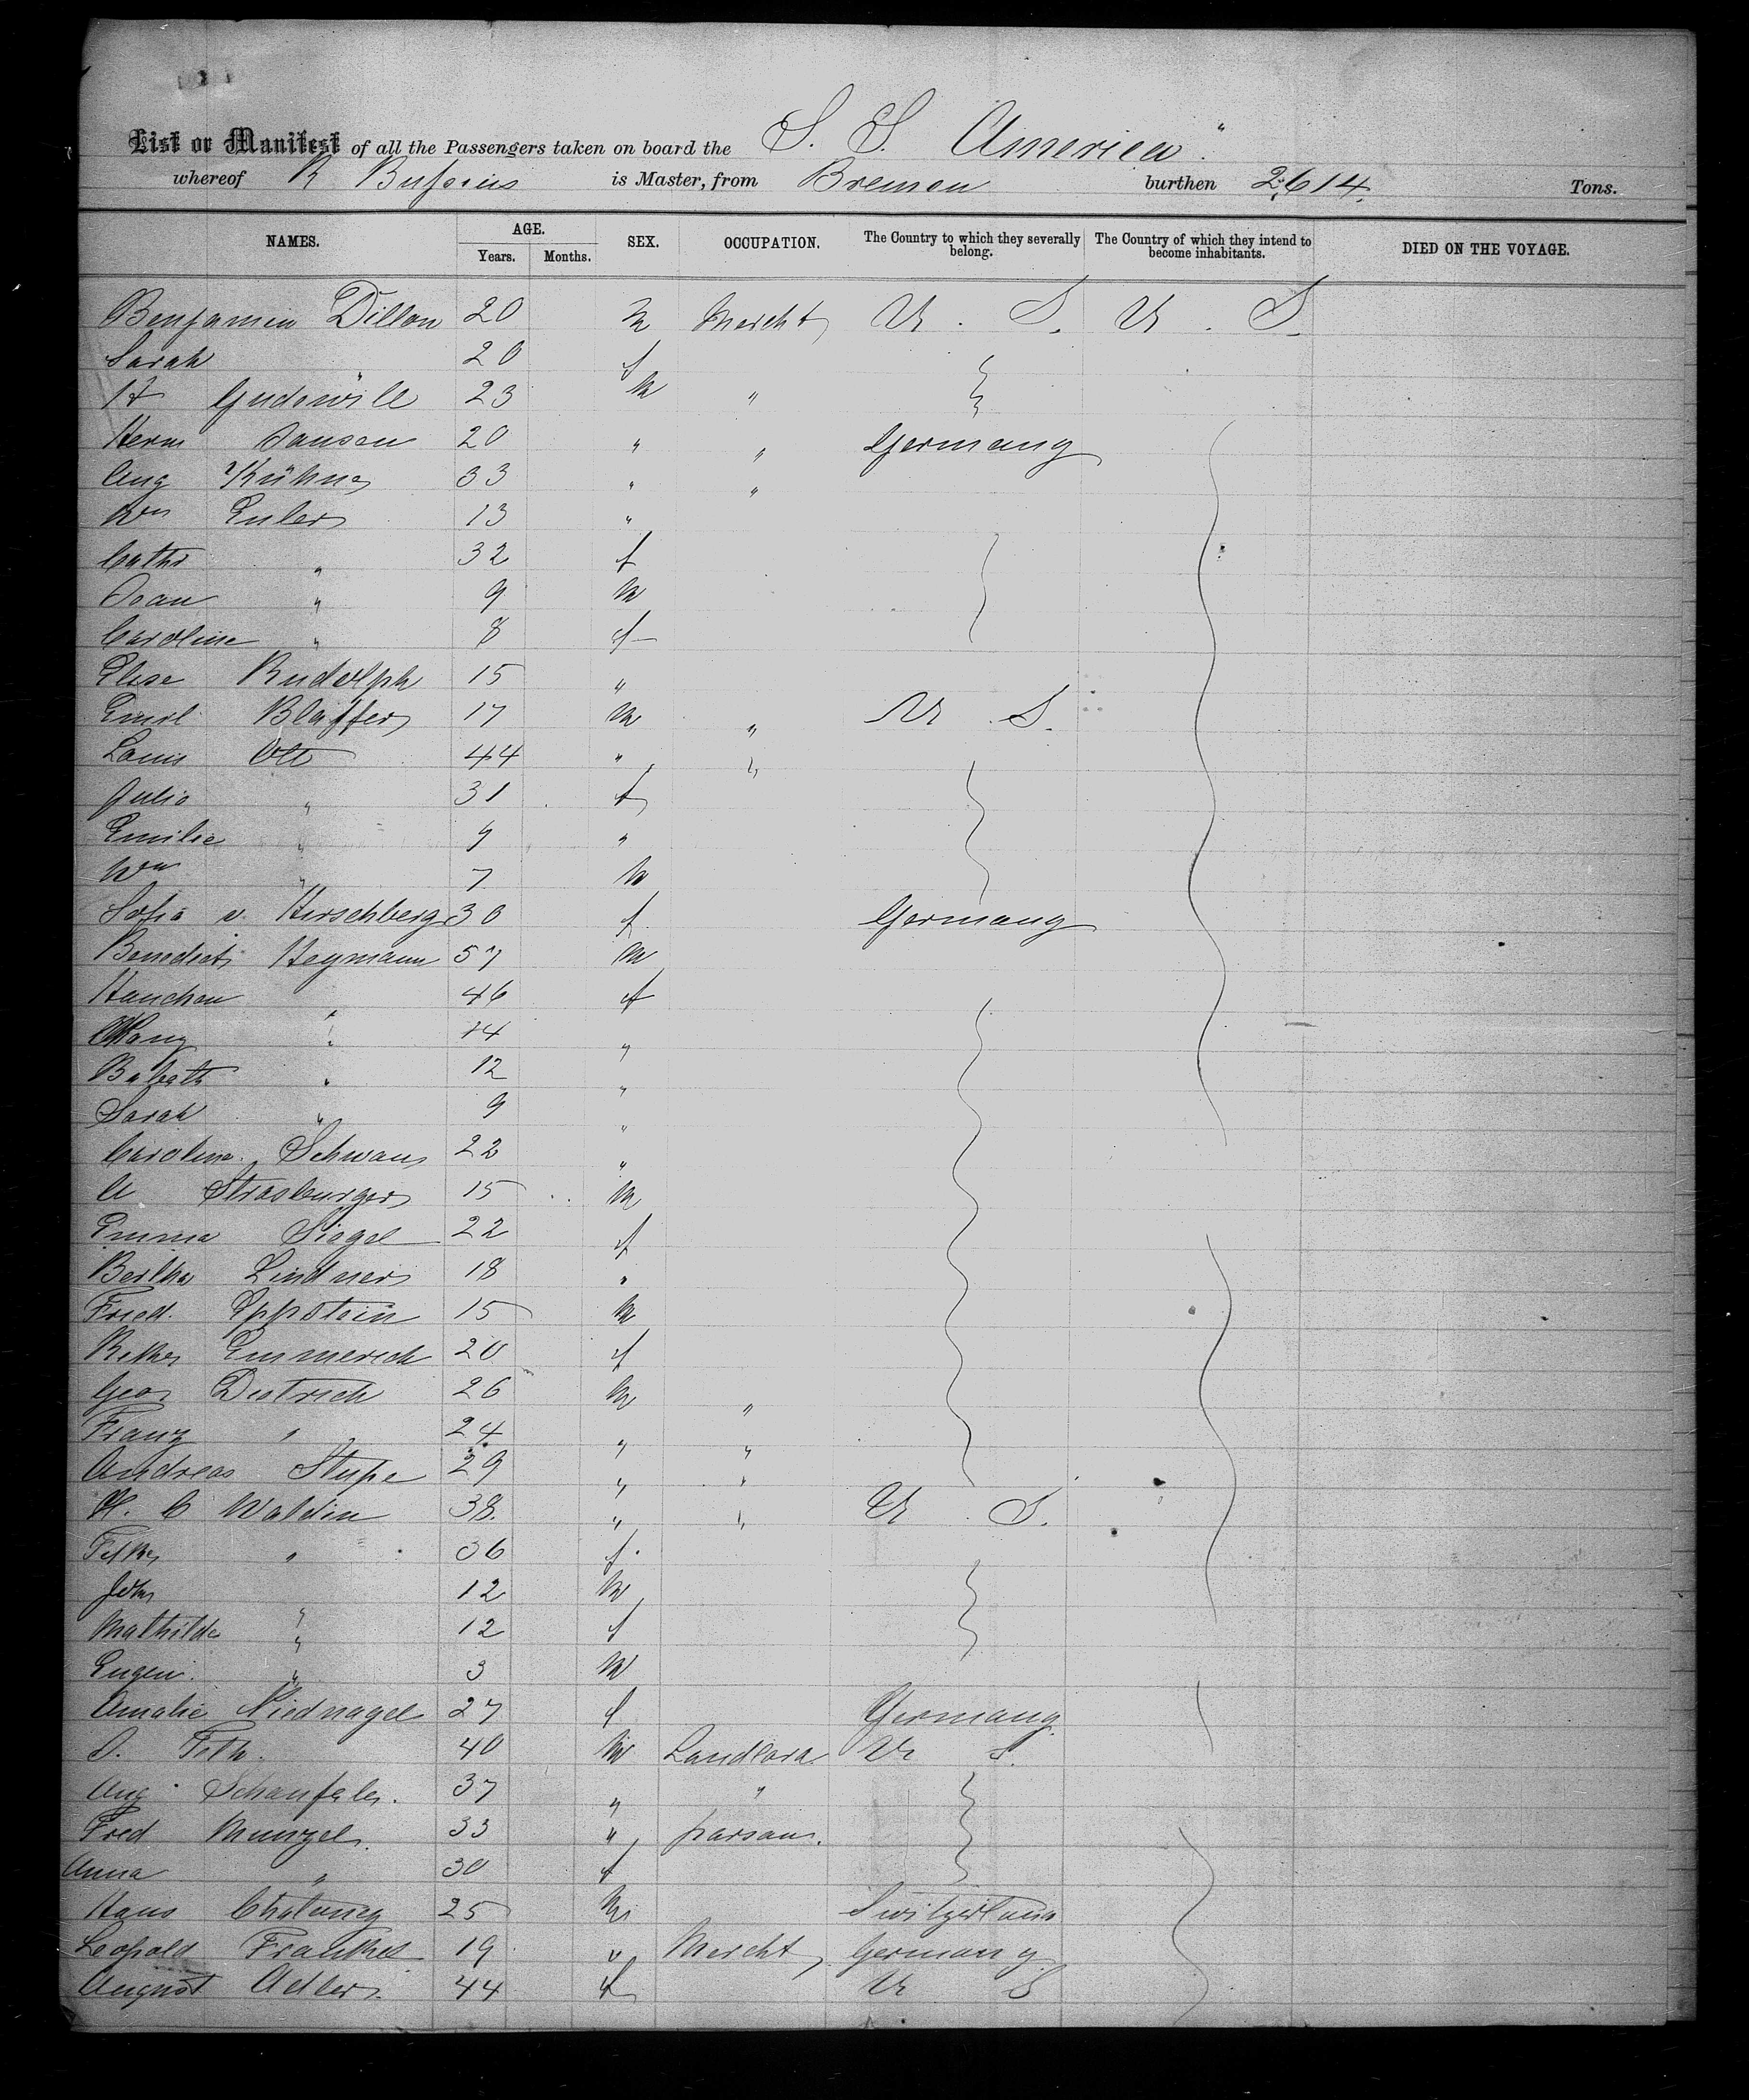 List or Manifest of all the Passengers taken on board the S. S. America"
whereof R Bussius is Master, from Bremen burthen 2,614. Tons.
NAMES. AGE. SEX. OCCUPATION. The Country to which they severally belong. The Country of which they intend to become inhabitants. DIED ON THE VOYAGE.
Years. Months.
Benjamin Dillon 20 m Mercht U. S. U. S.
Sarah " 20 f
H Gudewill 23 m "
Herm Jansen 20 " " Germany
Aug Kühne 33 " "
Wm Euler 13 "
Cath " 32 f
Jean " 9 m
Caroline " 8 f
Elise Rudolph 15 "
Emil Blaffer 17 m " U. S.
Louis Ott 44 " "
Julie " 31 f
Emilie " 9 "
Wm " 7 m
Sofie v. Hirschberg 30 f Germany
Benedict Heymann 57 m
Hanchen " 46 f
" 14 "
Babeth " 12 "
Sarah " 9 "
Caroline Schwan 22 "
A Strasburger 15 m
Emma Siegel 22 f
Bertha Lindner 18 "
Fried. Eppstein 15 m
Emmerich 20 f
Geo Dietrich 26 m "
Franz " 24 " "
Andreas Stupe 29 " "
H. C Waldin 38 " " U. S.
" 36 f
John " 12 m
Mathilde " 12 f
Eugen " 3 m
Amalie Niednagel 27 f Germany
Feth. 40 m Landlord U S.
Aug Schaufele. 37 " "
Fred Munzel 33 " parson.
Anna " 30 f
Hans 25 m Switzerland
Leopold Frankel 19 " Mercht Germany
August Adler 44 f U S